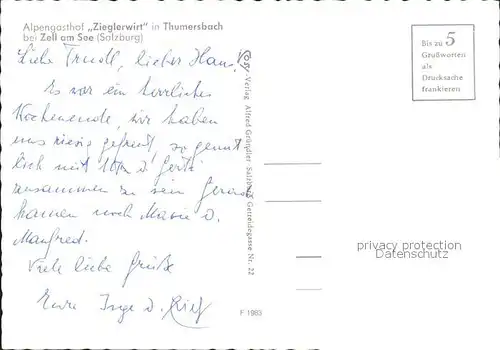 Alpengasthof „Zieglerwirt" in Thumersbach
bei Zell am See (Salzburg)
Liebe Trudl, lieber Hans!
Es war ein herrliches
Wochenende, wir haben
uns riesig gefreut, so gemüt
lich mit u. Gerti
zusammen zu sein. Gerade
kamen noch Maria u.
Manfred.
Viele liebe Grüße
Eure Inge u.
Cosy-Verlag Alfred Gründler Salzburg Getreidegasse Nr. 22
F 1983
Bis zu 5
Grußworten
als
Drucksache
frankieren
privacy protection
Datenschutz